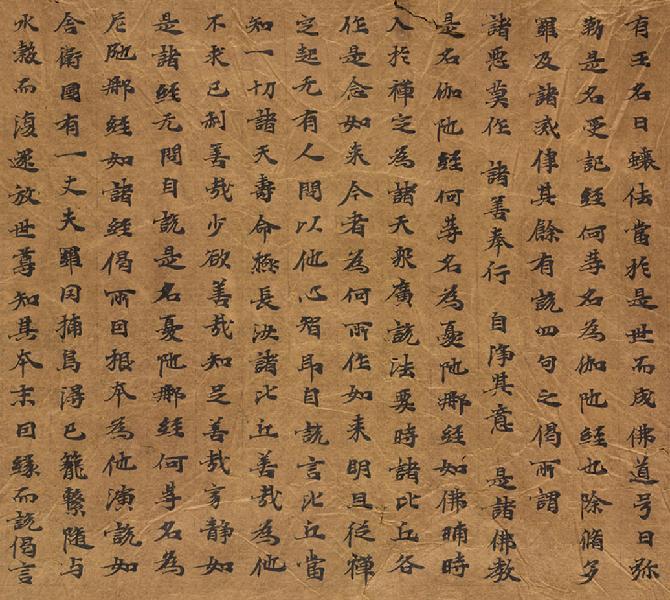 有王名曰蠰佉當於是世而成佛道号曰弥
勒是名受記経何等名為伽陁経也除脩多
羅及諸戒律其餘有說四句之偈所謂
諸惡莫作 諸善奉行 自浄其意 是諸佛教
是名伽陁経何等名為憂陁那経如佛晡時
入於禅定為諸天衆廣說法要時諸比丘各
作是念如来今者為何所作如来明旦従禅
定起无有人問以他心智即自說言比丘當
知一切諸天壽命極長汝諸比丘善哉為他
不求己利善哉少欲善哉知足善哉寂静如
是諸経无問自說是名憂陁那経何等名為
尼陁那経如諸経偈所因根本為他演說如
舍衛國有一丈夫羅罔捕鳥得已籠繫隨与
水穀而復還放世尊知其本末因縁而說偈言